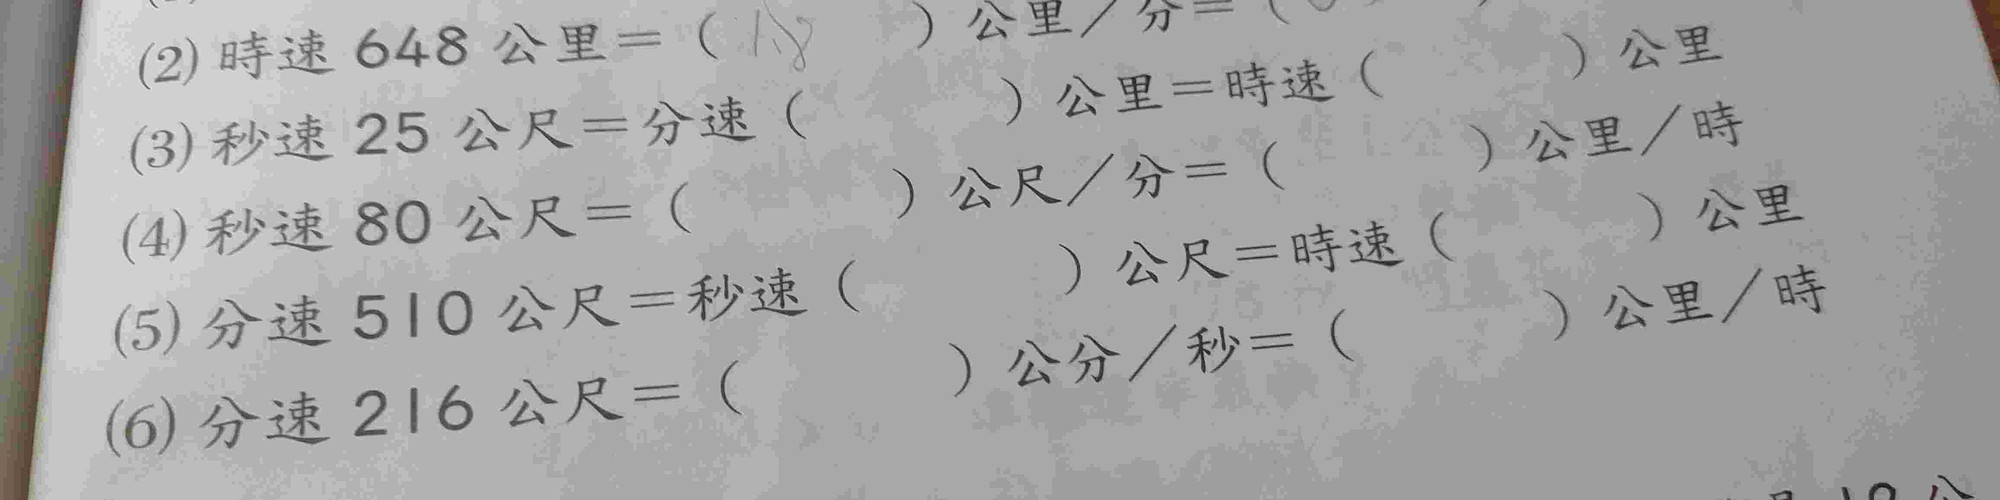 (2) 時速 648 公里＝（ 1.8 ）公里／分＝（
(3) 秒速 25 公尺＝分速（ ）公里＝時速（ ）公里
(4) 秒速 80 公尺＝（ ）公尺／分＝（ ）公里／時
(5) 分速 510 公尺＝秒速（ ）公尺＝時速（ ）公里
(6) 分速 216 公尺＝（ ）公分／秒＝（ ）公里／時